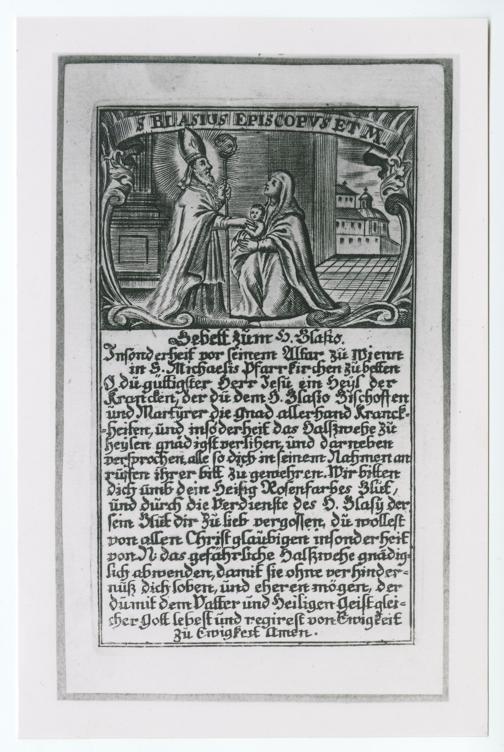 S BLASIUS EPISCOPVS ET M.
Gebett zum H. Blasio.
Insonderheit vor seinem Altar zu Wienn
in S. Michaelis Pfarrkirchen zu betten
O du güttigster Herr Jesu ein Heyl der
Krancken, der du dem H. Blasio Bischoffen
und Martyrer die gnad allerhand Kranck-
heiten, und insonderheit das Halßwehe zu
heylen gnädigst verlihen, und darneben
versprochen, alle so dich in seinem Nahmen an
rüffen ihrer bitt zu gewehren. Wir bitten
dich umb dein Heilig Rosenfarbes Blut,
und durch die Verdienste des H. Blasy der
sein Blut dir zu lieb vergossen, du wollest
von allen Christglaubigen insonderheit
von N. das gefährliche Halßwehe gnädig-
lich abwenden, damit sie ohne verhinder-
nuß dich loben, und eheren mögen, der
du mit dem Vatter und Heiligen Geist glei-
cher Gott lebest und regirest von Ewigkeit
zu Ewigkeit Amen.